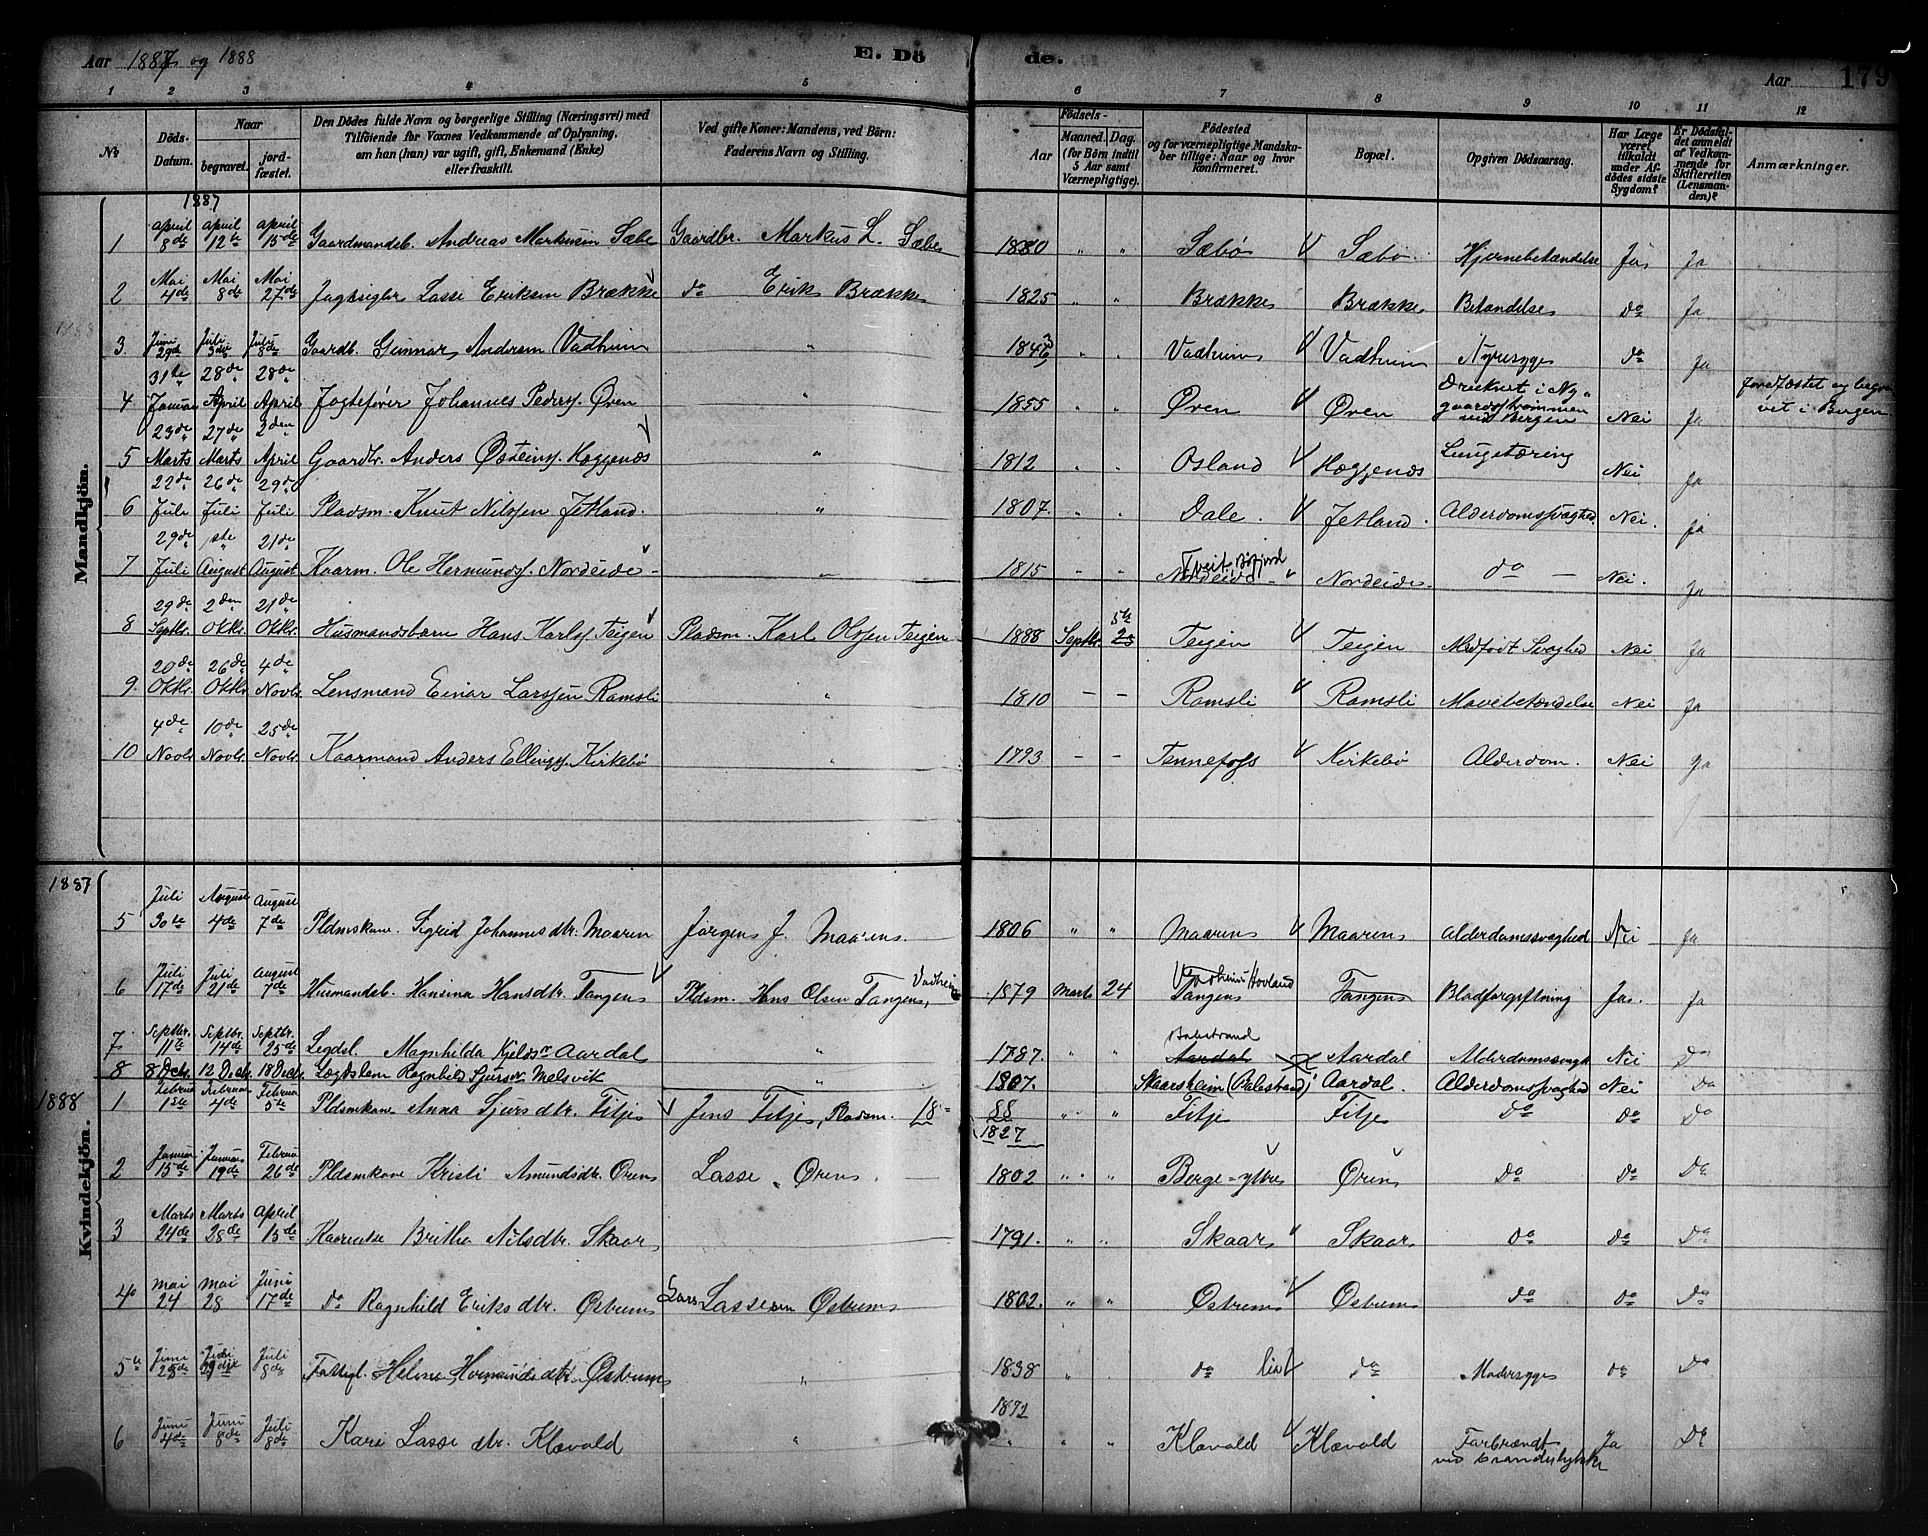 Aar 1887 og 1888 E. Döde. Aar 179
1 2 3 4 5 6 7 8 9 10 11 12
№ Döds-Datum. Naar begravet. jordfæstet. Den Dödes fulde Navn og borgerlige Stilling (Næringsvei) med Tilföiende for Voxnes Vedkommende af Oplysning, om han (hun) var ugift, gift, Enkemand (Enke) eller fraskilt. Ved gifte Koner: Mandens, ved Börn: Faderens Navn og Stilling. Födsels- Aar Maaned. Dag. (for Börn indtil 5 Aar samt Værnepligtige). Födested og for værnepligtige Mandskaber tillige: Naar og hvor konfirmeret. Bopæl. Opgiven Dödsaarsag. Har Læge været tilkaldt under Afdödes sidste Sygdom? Er Dödsfaldet anmeldt af Vedkommende for Skifteretten (Lensmanden)? Anmærkninger.
Mandkjön.
1887
1 April 8de April 12te April 15de Gaardmandsb. Andreas Markusen Sæbø Gaardbr. Markus L. Sæbø 1880 " " Sæbø Sæbø Hjernebetændelse Ja Ja
2 Mai 4de Mai 8de Mai 27de Jagtsigler Lasse Eriksen Brække do Erik Brække 1825 " " Brække Brække Betændelse do Ja
1888
3 Juni 29de Juli 3die Juli 8de Gaardb. Gunnar Andersen Vadheim " 1846 " " Vadheim Vadheim Nyresyge do Ja
4 31te Januar 28de April 28de April Jagtefører Johannes Peders. Øren " 1855 " " Øren Øren Druknet i Nygaardsstrømmen ved Bergen Nei Ja Jordfæstet og begravet i Bergen
5 23de Marts 27de Marts 2den April Gaardbr. Anders Østeins. Høggenæs " 1812 " " Osland Høggenæs Lungetæring Nei Ja
6 22de Juli 26de Juli 29de Juli Pladsm. Knut Nilssen Jetland. " 1807. " " Dale. Jetland. Alderdomssvaghed Nei. Ja
7 29de Juli 1ste August 21de August Kaarm. Ole Hermunds. Nordeide " 1815 " " Nordeide Tveit, Bøfjord Nordeide do Nei. Ja
8 29de Septbr. 2den Oktbr. 21de Oktbr. Husmandsbarn Hans Karls. Teigen Pladsm. Karl Olssen Teigen 1888 Septbr. 25 5te Teigen Teigen Medfødt Svaghed Nei Ja
9. 20de Oktbr. 26de Oktbr. 4de Novbr. Lensmand Einar Larssen Ramsli " 1810 – – Ramsli Ramsli Mavebetændelse Nei Ja
10 4de Novbr. 10de Novbr. 25de Novbr. Kaarmand Anders Ellings. Kirkebø " 1793 – – Tennefoss Kirkebø Alderdom. Nei Ja
Kvindekjön.
1887
5 Juli 30te August 4de August 7de Pldmskone. Sigrid Johannesdtr. Maaren Jørgen J. Maaren. 1806 " " Maaren Maaren Alderdomssvaghed Nei Ja
6 Juli 17de Juli 21de August 7de Husmandsb. Hansina Hansdtr. Tangen Pldsm. Hans Olsen Tangen, Vadheim 1879 Marts 24 Vadheim Hovland Tangen Tangen Blodforgiftning Ja. Ja
7 Septbr. 11te Septbr. 14de Septbr. 25de Legdsl. Magnhilda Kjeldsdr. Aardal " 1787. " " Aardal Balestrand Aardal Alderdomssvagh. Nei Do
8 8 Decbr. 12 Decbr. 18 Decbr. Lægdslem Ragnhild Sjursdr. Melsvik " 1807. Skaarsheim (Balestrand) Aardal. Alderdomssvaghed Nei Do
1888
1 Februar 1ste Februar 4de Februar 5te Pldsmkone Anna Sjursdtr. Fitje Jens Fitje, Pladsm. 18 88 1827 " " Fitje Fitje Do Do Do
2 Januar 15de Januar 19de Februar 26de Pldsmkone Kristi Amundsdtr. Øren Lasse " Øren. 1802 " " Berge-ytre Øren Do Do Do
3 Marts 24de Marts 28de April 15de Kaarenke Britha Nilsdtr. Skaar 1791. " " Skaar Skaar Do Do Do
4 Mai 24 Mai 28 Juni 17de do Ragnhild Eriksdtr. Østrem Lars Lassesen Østrem 1802. " " Østrem Østrem Do Do Do
5 Juni 25de Juli 8de Fattigl. Helene Hermundsdtr. Østrem " 1838 " do do Modersyge do Do
6 Juni 4de Juni 8de Juli 8de Kari Lassedtr. Klævold " 1872 " " " Klævold Klævold Forbrændt ved Brandulykke Ja Do